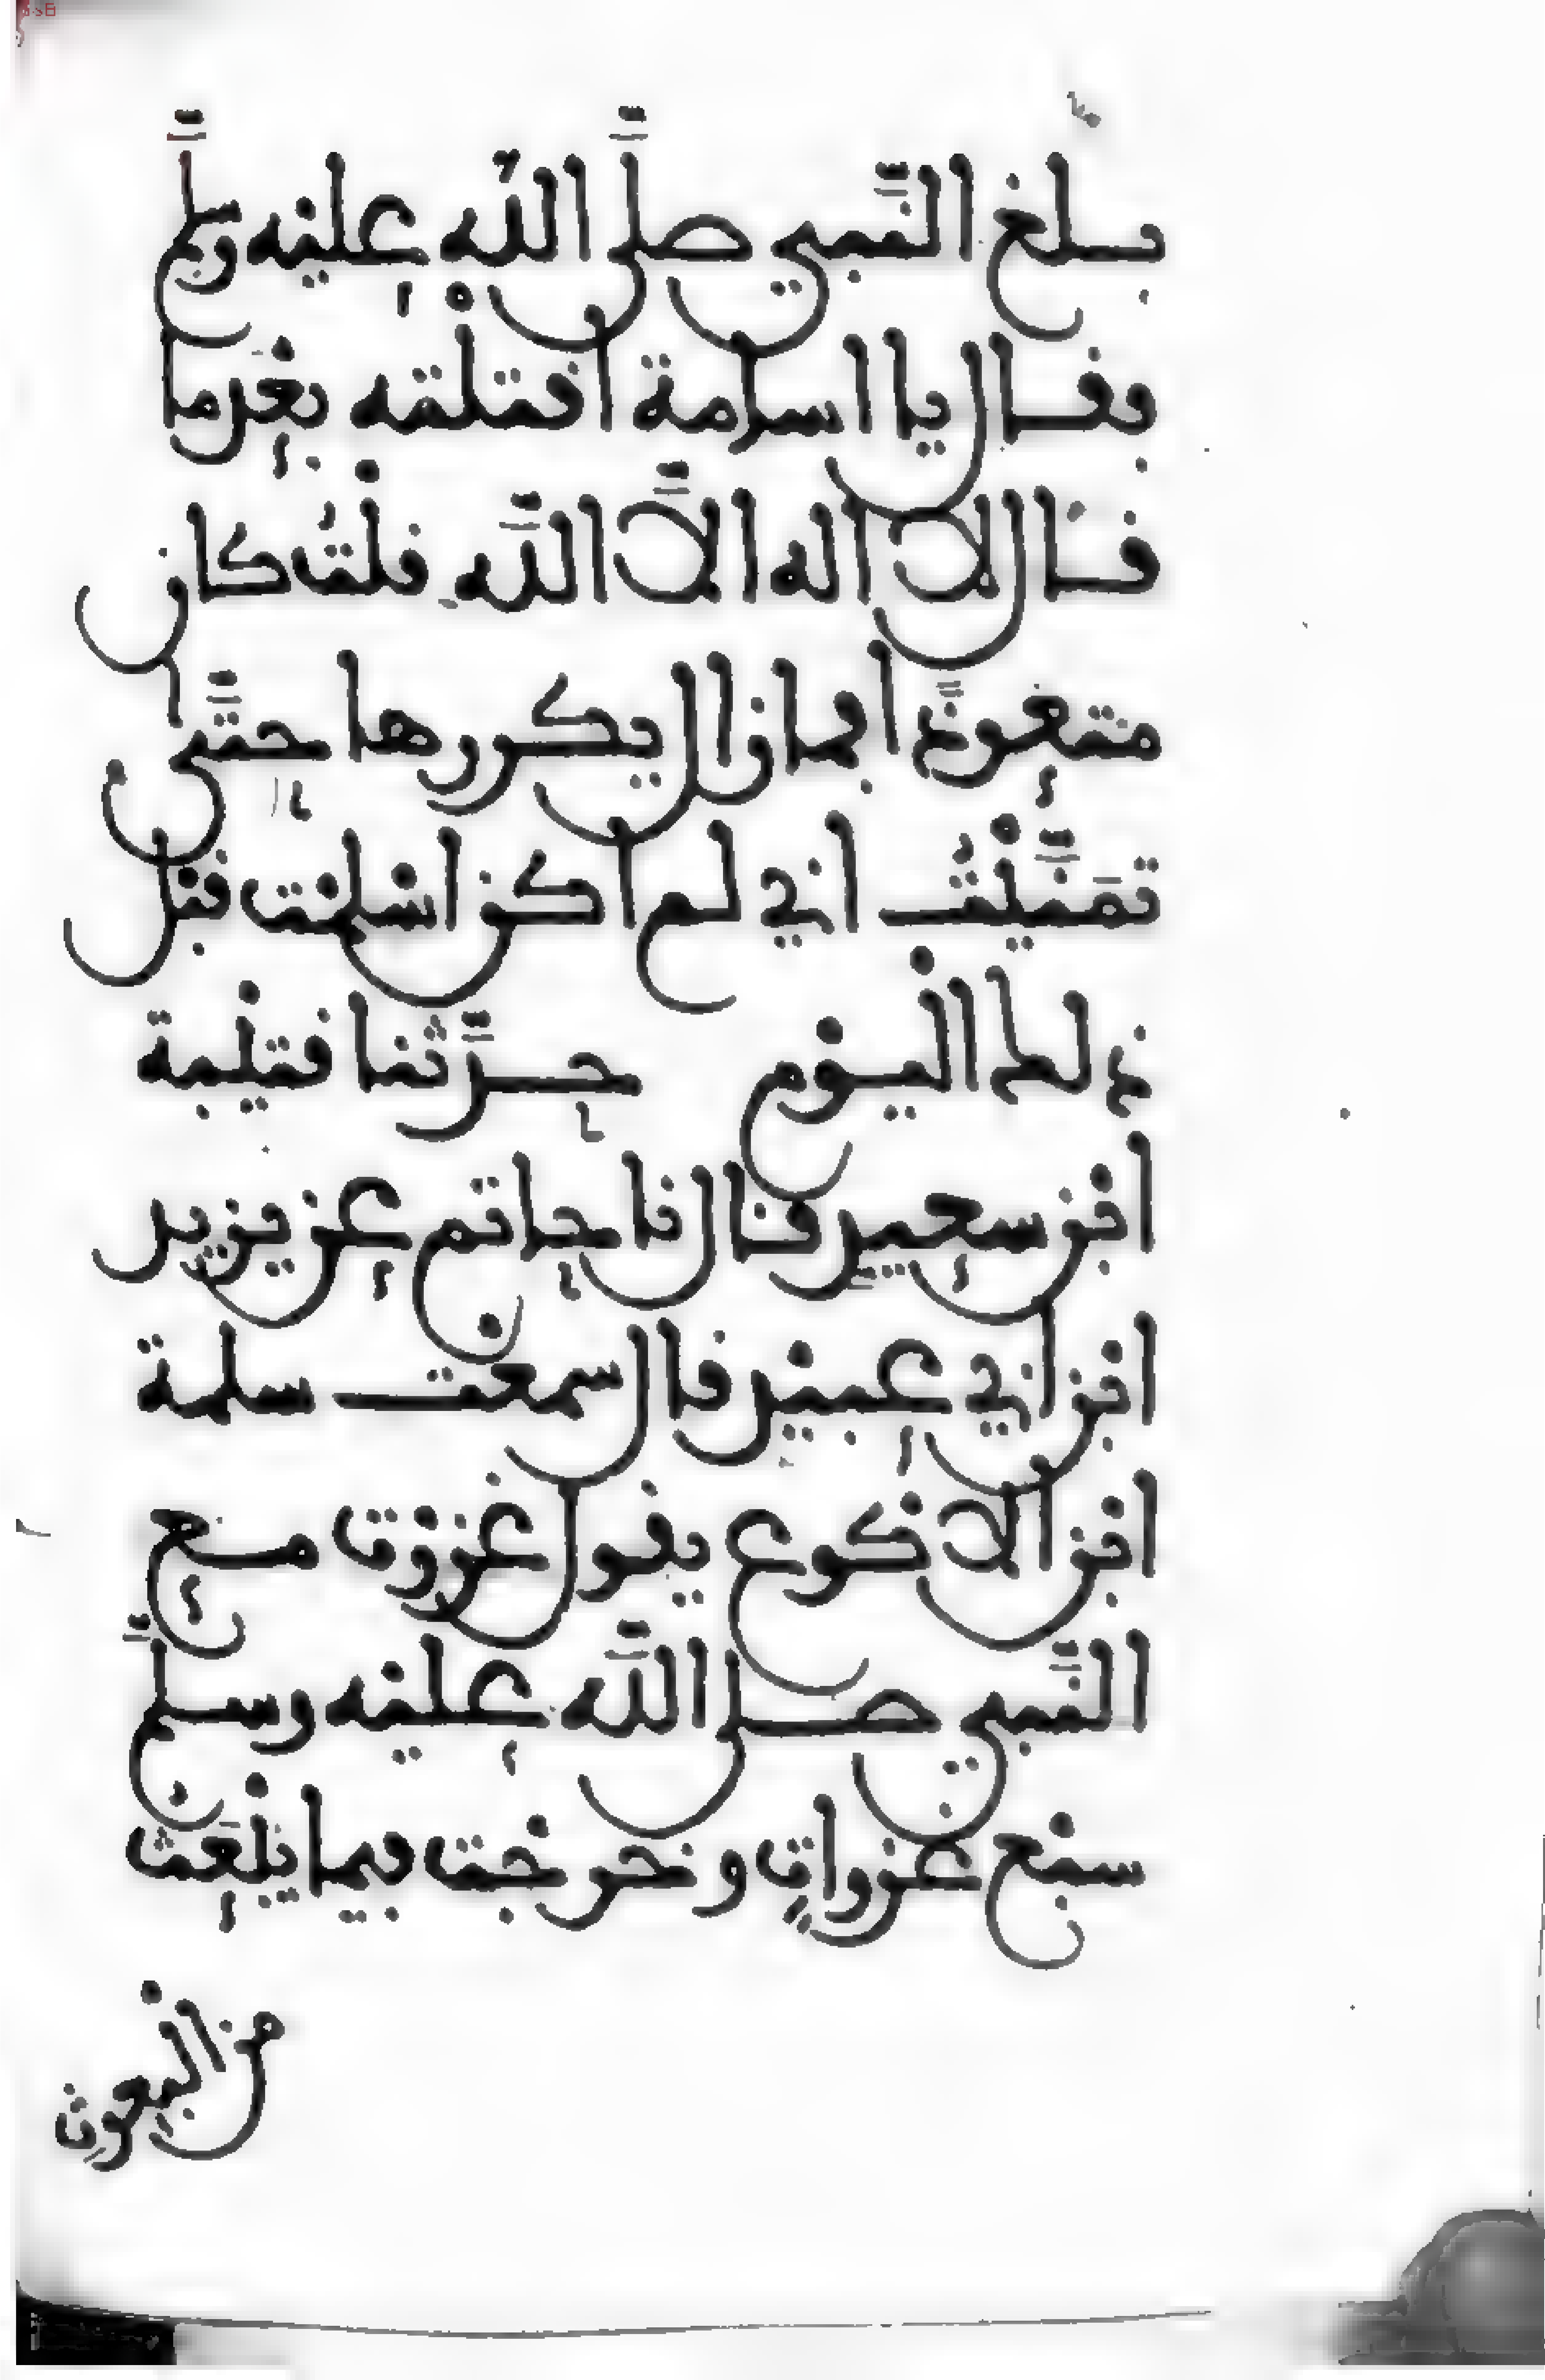 بلغ النَّبي صلَّى اللّٰه عليْه وسلَّم
فقال يا اسامة اقتلْته بعْد ما
قال لا اله الَّا اللَّه قلْتُ كان
متعوذًا فما زال يكررها حتَّى
تمَنَّيْتُ اني لم اكن اسْلمْت قبْل
ذلك الْيوْم حدَّثنا قتيْبة
ابْن سعيدٍ قال نا حاتم عن يزيد
ابْن ابي عبيْد قال سمعْت سلمة
ابْن الاكوع يقول غزوْت مع
النَّبي صلى اللَّه عليْه وسلَّم
سبْع غزواتٍ وخرجْت فيما يبْعَث
من الْبعوثِ